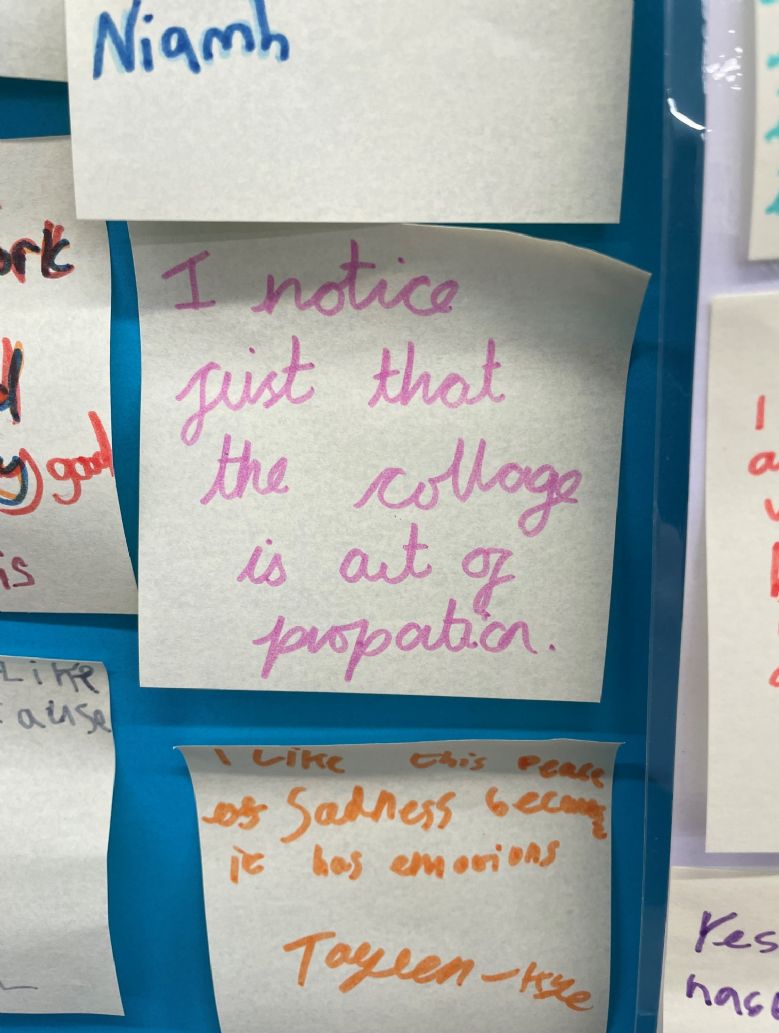 Niamh
ork
good
is
I notice
just that
the collage
is out of
propation.
Like
cause
I Like this peace
of Sadness because
it has emotions
Yes